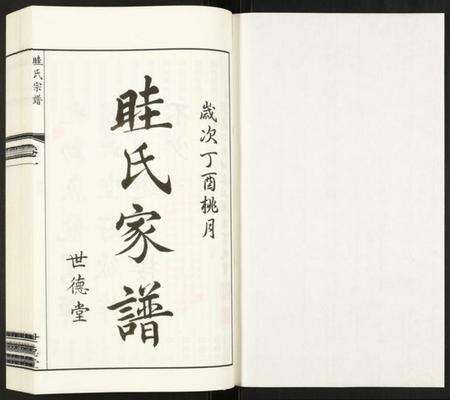 歲次丁酉桃月
眭氏家譜
世德堂
眭氏宗譜
卷一